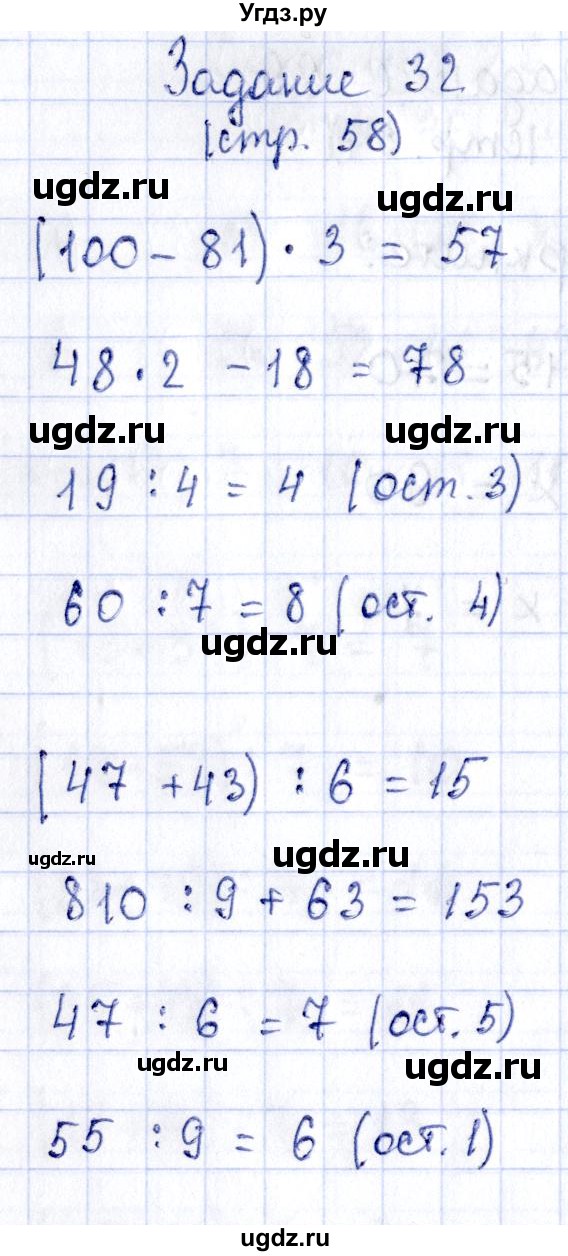 Угдз.ру
Задание 32
(стр. 58)
ugdz.ru ugdz.ru
(100 - 81) · 3 = 57
48 · 2 - 18 = 78
ugdz.ru ugdz.ru
19 : 4 = 4 (ост. 3)
60 : 7 = 8 (ост. 4)
ugdz.ru
(47 + 43) : 6 = 15
ugdz.ru ugdz.ru
810 : 9 + 63 = 153
47 : 6 = 7 (ост. 5)
ugdz.ru ugdz.ru
55 : 9 = 6 (ост. 1)
ugdz.ru